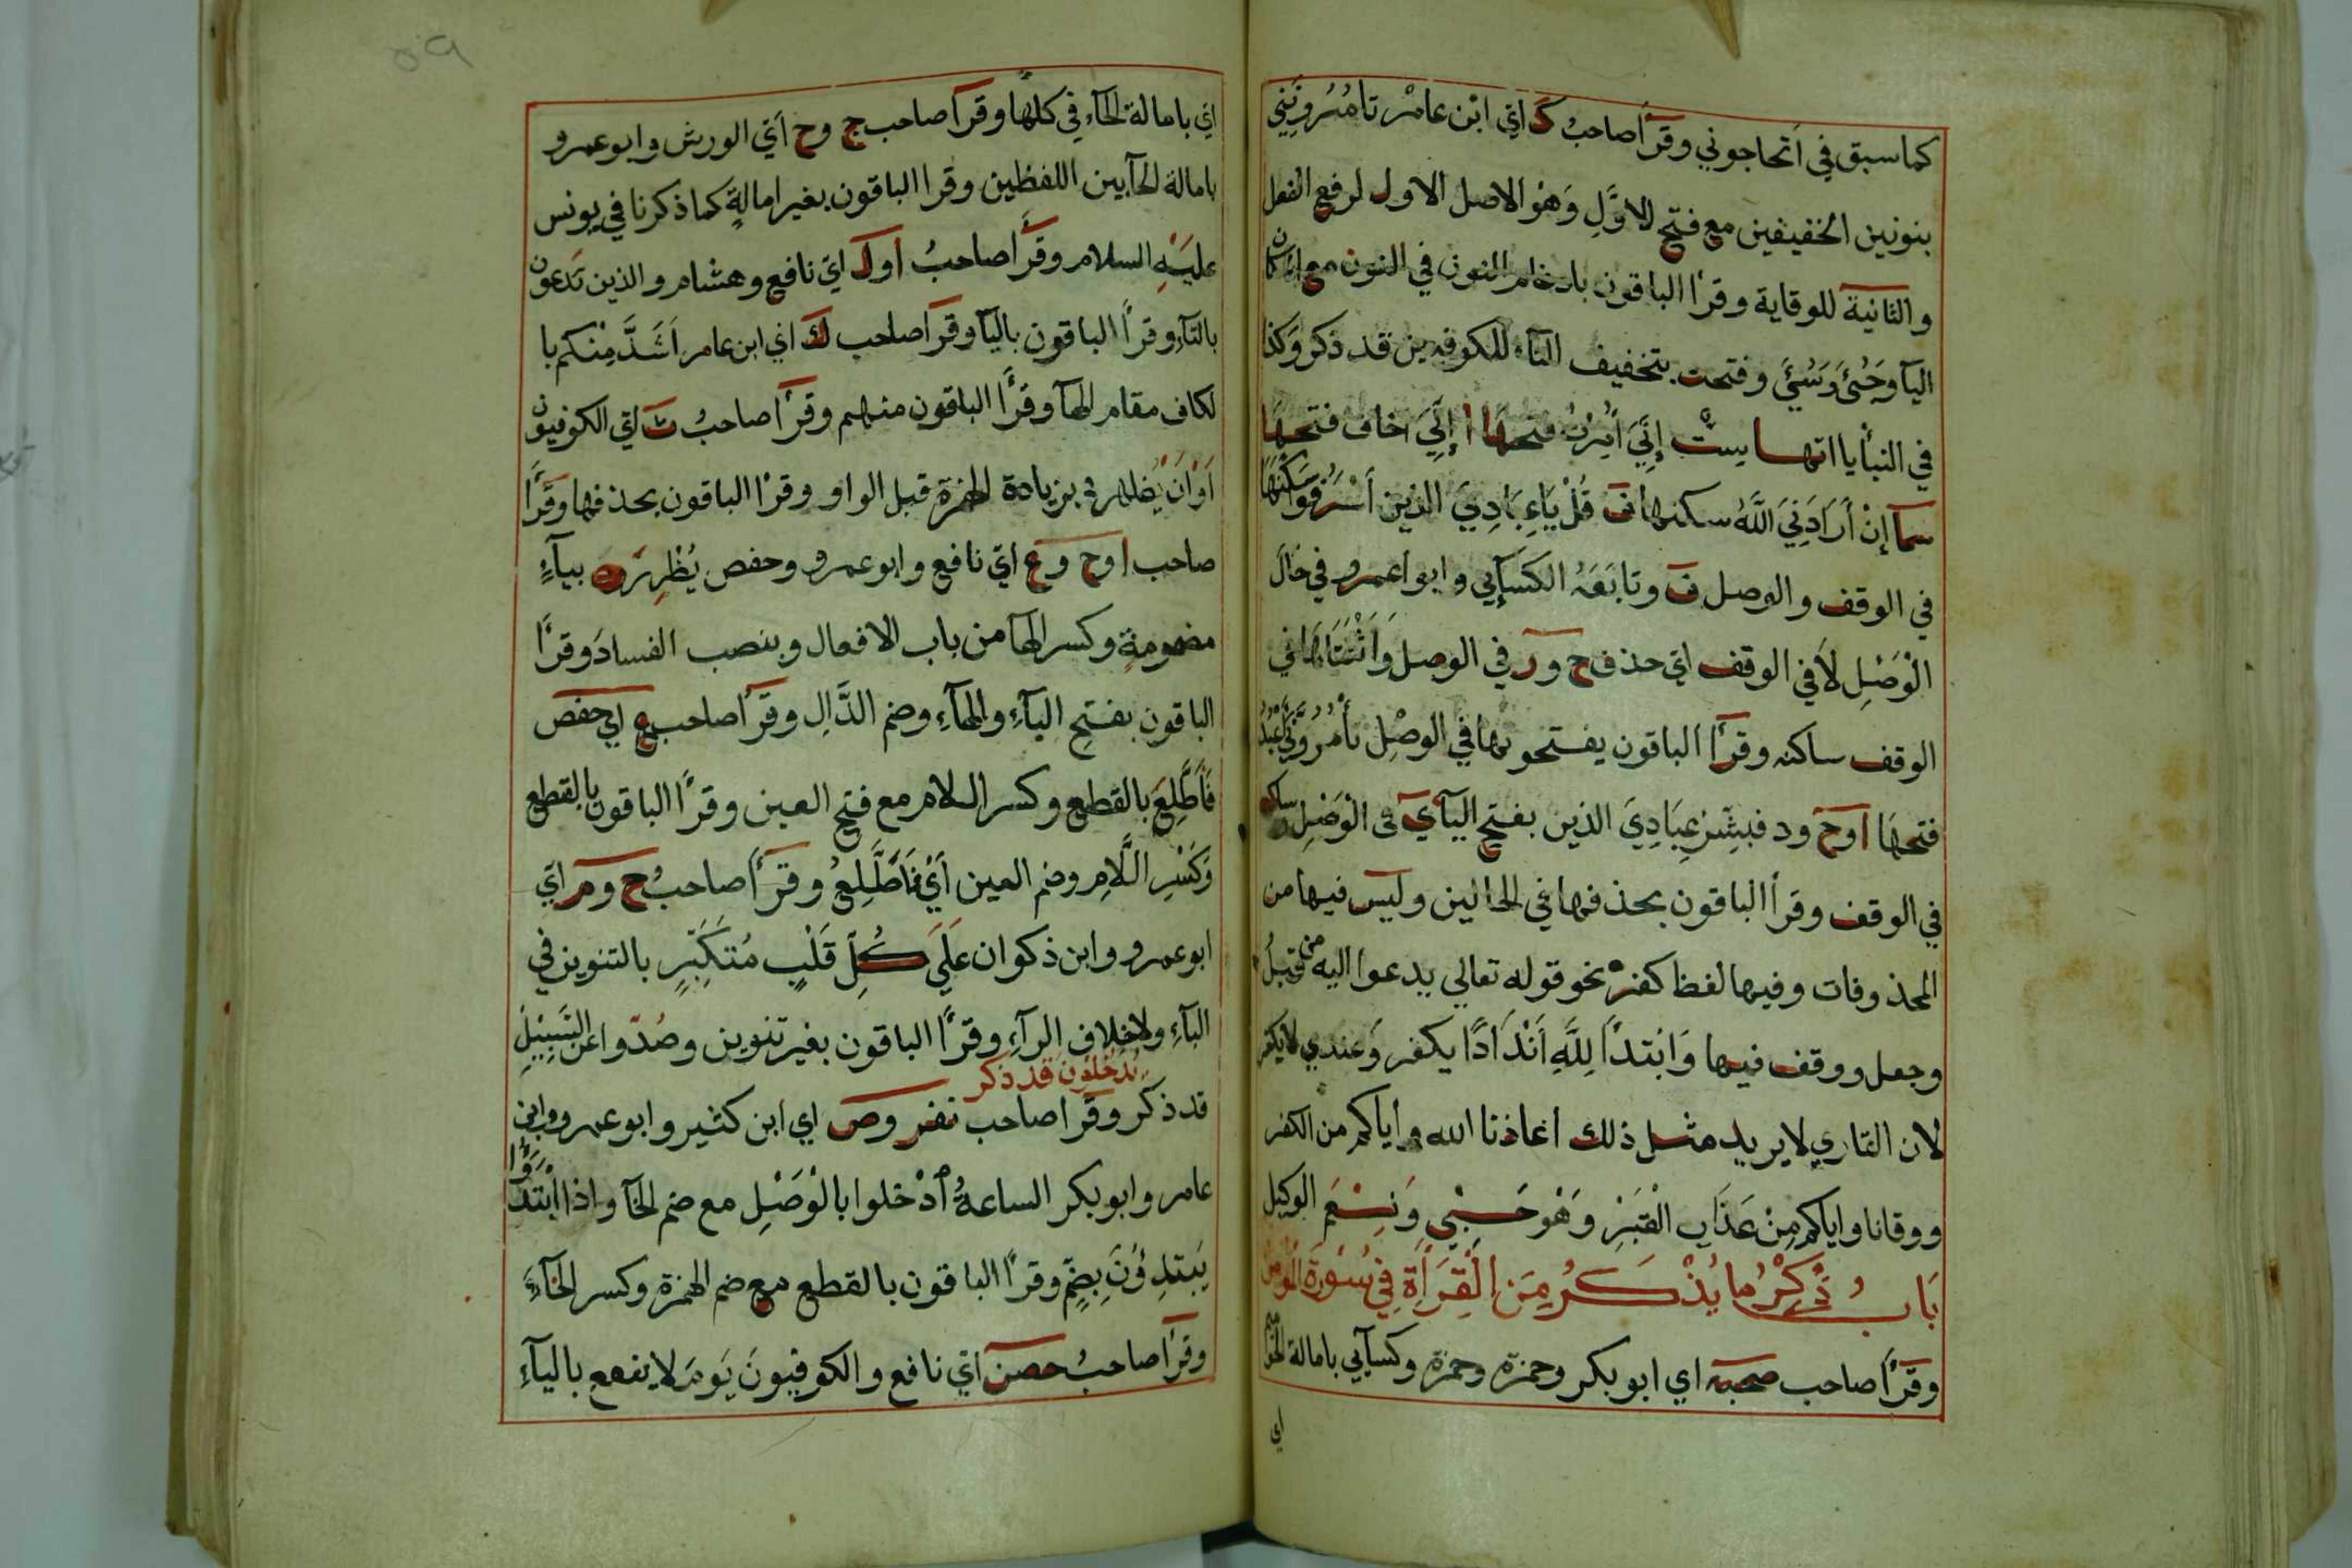 كما سبق في أتحاجوني وقرأ صاحب ك اي ابن عامر تامرونني
بنونين الخفيفين مع فتح الاول وهو الاصل الاول لرفع الفعل
والثانية للوقاية وقرأ الباقون بادغام النون في النون مع
اليآ وجئ وسئ وفتحت بتخفيف التآء للكوفيين قد ذكر وكذا
في النبأ يااتها ست إني أمرت فتحها ا إني اخاف فتحها
سما إن أرادني الله سكنها ف قل ياعبادي الذين أسرفوا سكنها
في الوقف والوصل ف وتابعه الكسآيي وابوا عمرو في حال
الوصل لا في الوقف اي حذف ح ور في الوصل واثبتاها في
الوقف ساكنه وقرأ الباقون يفتحونها في الوصل تأمروني أعبد
فتحها ا وح ود فبشر عبادي الذين بفتح اليآ ي في الوصل ساكنه
في الوقف وقرأ الباقون بحذفها في الحالين وليس فيها من
المحذوفات وفيها لفظ كفر نحو قوله تعالي يدعوا اليه من قبل
وجعل ووقف فيها وابتدأ لله أندادا يكفر وعندي لا يكفر
لان القاري لا يريد مثل ذلك اعاذنا الله واياكم من الكفر
ووقانا واياكم من عذاب القبر وهو حسبي ونعم الوكيل
باب ذكر ما يذكر من القرأة في سورة المؤمن
وقرأ صاحب صحبه اي ابو بكر وحمزة وحمزة وكسآيي بامالة الحا
اي
اي بامالة الحآء في كلها وقرأ صاحب ج وح أي الورش وابو عمرو
بامالة الحآ بين اللفظين وقرا الباقون بغير امالة كما ذكرنا في يونس
عليه السلام وقرأ صاحب ا ول اي نافع وهشام والذين تدعون
بالتآء وقرأ الباقون باليآ وقرأ صاحب ك اي ابن عامر أشد منكم با
لكاف مقام الهآ وقرأ الباقون منهم وقرأ صاحب ث اي الكوفيون
أو أن يظهر في بزيادة الهمزة قبل الواو وقرأ الباقون بحذفها وقرأ
صاحب ا وح وع اي نافع وابو عمرو وحفص يظهر بيآء
مضمومة وكسر الهآ من باب الافعال وبنصب الفساد وقرأ
الباقون بفتح اليآء والهآء وضم الدال وقرأ صاحب ع اي حفص
فأطلع بالقطع وكسر اللام مع فتح العين وقرأ الباقون بالقطع
وكسر اللام وضم العين أي فأطلع وقرأ صاحب ح وم اي
ابو عمرو وابن ذكوان علي كل قلب متكبر بالتنوين في
البآء ولا خلاف الرآء وقرأ الباقون بغير تنوين وصدوا عن السبيل
يدخلون قد ذكر
قد ذكر وقرا صاحب نفر وص اي ابن كثير وابو عمرو وابن
عامر وابو بكر الساعة أدخلوا بالوصل مع ضم الخآ واذا ابتدؤا
يبتدؤن بضم وقرأ الباقون بالقطع مع ضم الهمزة وكسر الخآء
وقرأ صاحب حصن اي نافع والكوفيون يوم لا ينفع باليآء